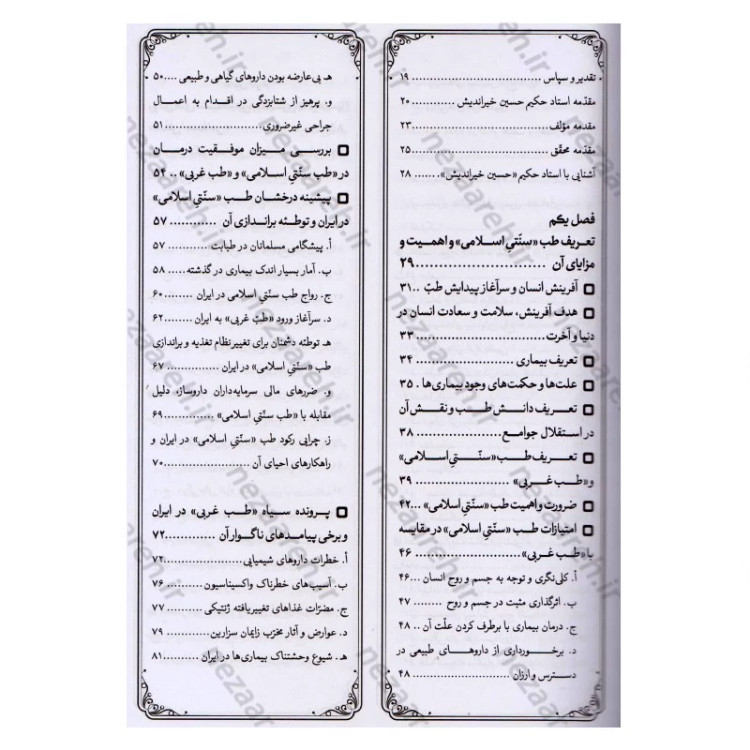 تقدیر و سپاس ............ ۱۹
مقدّمه استاد حکیم حسین خیراندیش ............ ۲۰
مقدمه مؤلف ............ ۲۳
مقدّمه محقّق ............ ۲۵
آشنایی با استاد حکیم «حسین خیراندیش» ....... ۲۸
فصل یکم
تعریف طب «سنّتیِ اسلامی» و اهمیت و
مزایای آن ............ ۲۹
آفرینش انسان و سرآغاز پیدایش طبّ .. ۳۱
هدف آفرینش، سلامت و سعادت انسان در
دنیا و آخرت ............ ۳۳
تعریف بیماری ............ ۳۴
علت‌ها و حکمت‌های وجود بیماری‌ها . ۳۵
تعریف دانش طب و نقش آن
در استقلال جوامع ............ ۳۸
تعریف طب «سنّتیِ اسلامی»
و «طب غربی» ............ ۳۹
ضرورت و اهمیت طب «سنّتیِ اسلامی» ... ۴۲
امتیازات طب «سنّتیِ اسلامی» در مقایسه
با «طب غربی» ............ ۴۶
أ. کلی‌نگری و توجه به جسم و روح انسان ... ۴۶
ب. اثرگذاری مثبت در جسم و روح ........ ۴۷
ج. درمان بیماری با برطرف کردن علّت آن .. ۴۸
د. برخورداری از داروهای طبیعی در
دسترس و ارزان ............ ۴۸
هـ. بی‌عارضه بودن داروهای گیاهی و طبیعی .... ۵۰
و. پرهیز از شتابزدگی در اقدام به اعمال
جراحی غیرضروری ............ ۵۱
بررسی میزان موفقیت درمان
در «طب سنّتیِ اسلامی» و «طب غربی» .. ۵۴
پیشینه درخشان طب «سنّتیِ اسلامی»
در ایران و توطئه براندازی آن ............ ۵۷
أ. پیشگامی مسلمانان در طبابت ............ ۵۷
ب. آمار بسیار اندک بیماری در گذشته ...... ۵۸
ج. رواج طب سنّتیِ اسلامی در ایران ........ ۶۰
د. سرآغاز ورود «طبّ غربی» به ایران ....... ۶۲
هـ. توطئه دشمنان برای تغییر نظام تغذیه و براندازی
طب «سنّتیِ اسلامی» در ایران ............ ۶۷
و. ضررهای مالی سرمایه‌داران داروساز، دلیل
مقابله با «طب سنّتیِ اسلامی» ............ ۶۹
ز. چرایی رکود طب «سنّتیِ اسلامی» در ایران و
راهکارهای احیای آن ............ ۷۰
پرونده سیاه «طب غربی» در ایران
و برخی پیامدهای ناگوار آن ............ ۷۲
أ. خطرات داروهای شیمیایی ............ ۷۲
ب. آسیب‌های خطرناک واکسیناسیون ....... ۷۶
ج. مضرّات غذاهای تغییریافته ژنتیکی ....... ۷۷
د. عوارض و آثار مخرّب زایمان سزارین ....... ۷۹
هـ. شیوع وحشتناک بیماری‌ها در ایران ........ ۸۱
nezaareh.ir